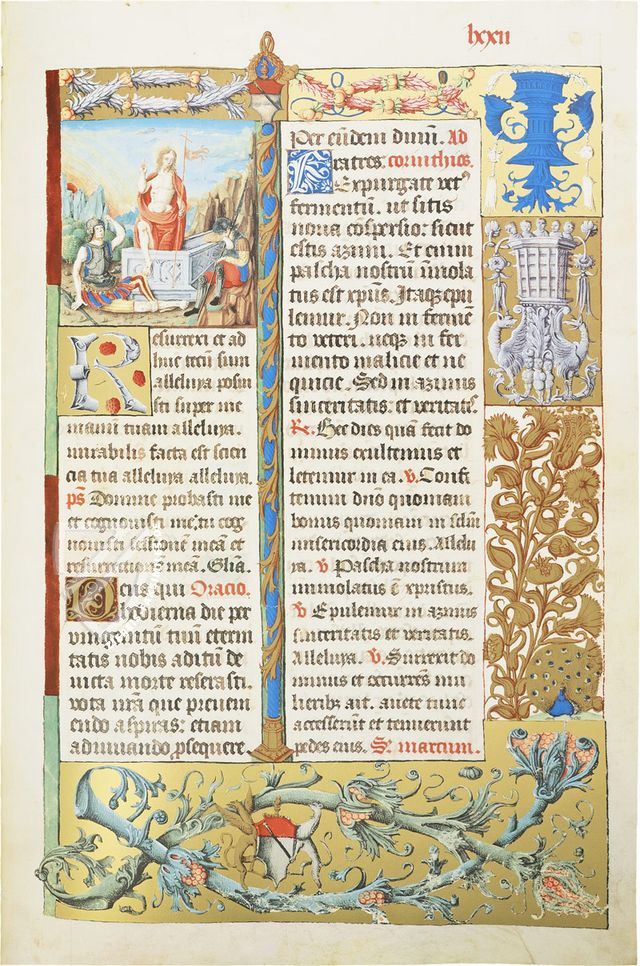 lxxii
Resurrexi et ad
huc tecū sum
alleluya posui
sti super me
manū tuam alleluya.
mirabilis facta est scien
cia tua alleluya alleluya.
ps Domine probasti me
et cognouisti me: tu cog
nouisti sessionē meā et
resurrectionē meā. Glīa.
Deus qui Oracio.
hodierna die per
vnigenitū tuū eterni
tatis nobis aditū de
uicta morte reserasti.
vota nrā que preueni
endo aspiras: etiam
adiuuando, psequere.
Per eūdem dnm̄. Ad
Fratres: corinthios.
Expurgate vetꝰ
fermentū. ut sitis
noua cōspersio: sicut
estis azimi. Et enim
pascha nostrū īmola
tus est xpūs. Itaqꝫ epu
lemur. Non in fermē
to veteri. neqꝫ in fer
mento malicie et ne
quicie. Sed in azimis
sinceritatis: et veritatꝭ.
R. Hec dies quā fecit do
minus exultemus et
letemur in ea. v. Confi
temini dnō quoniam
bonus quoniam in sclm̄
misericordia eius. Allelu
ya. v Pascha nostrum
immolatus ē xpristus.
v Epulemur in azimis
sinceritatis et veritatis.
Alleluya. v. Surrexit do
minus et occurrēs mu
lieribꝫ ait. auete tunc
accesserūt et tenuerunt
pedes eius. Sꝫ marcum.